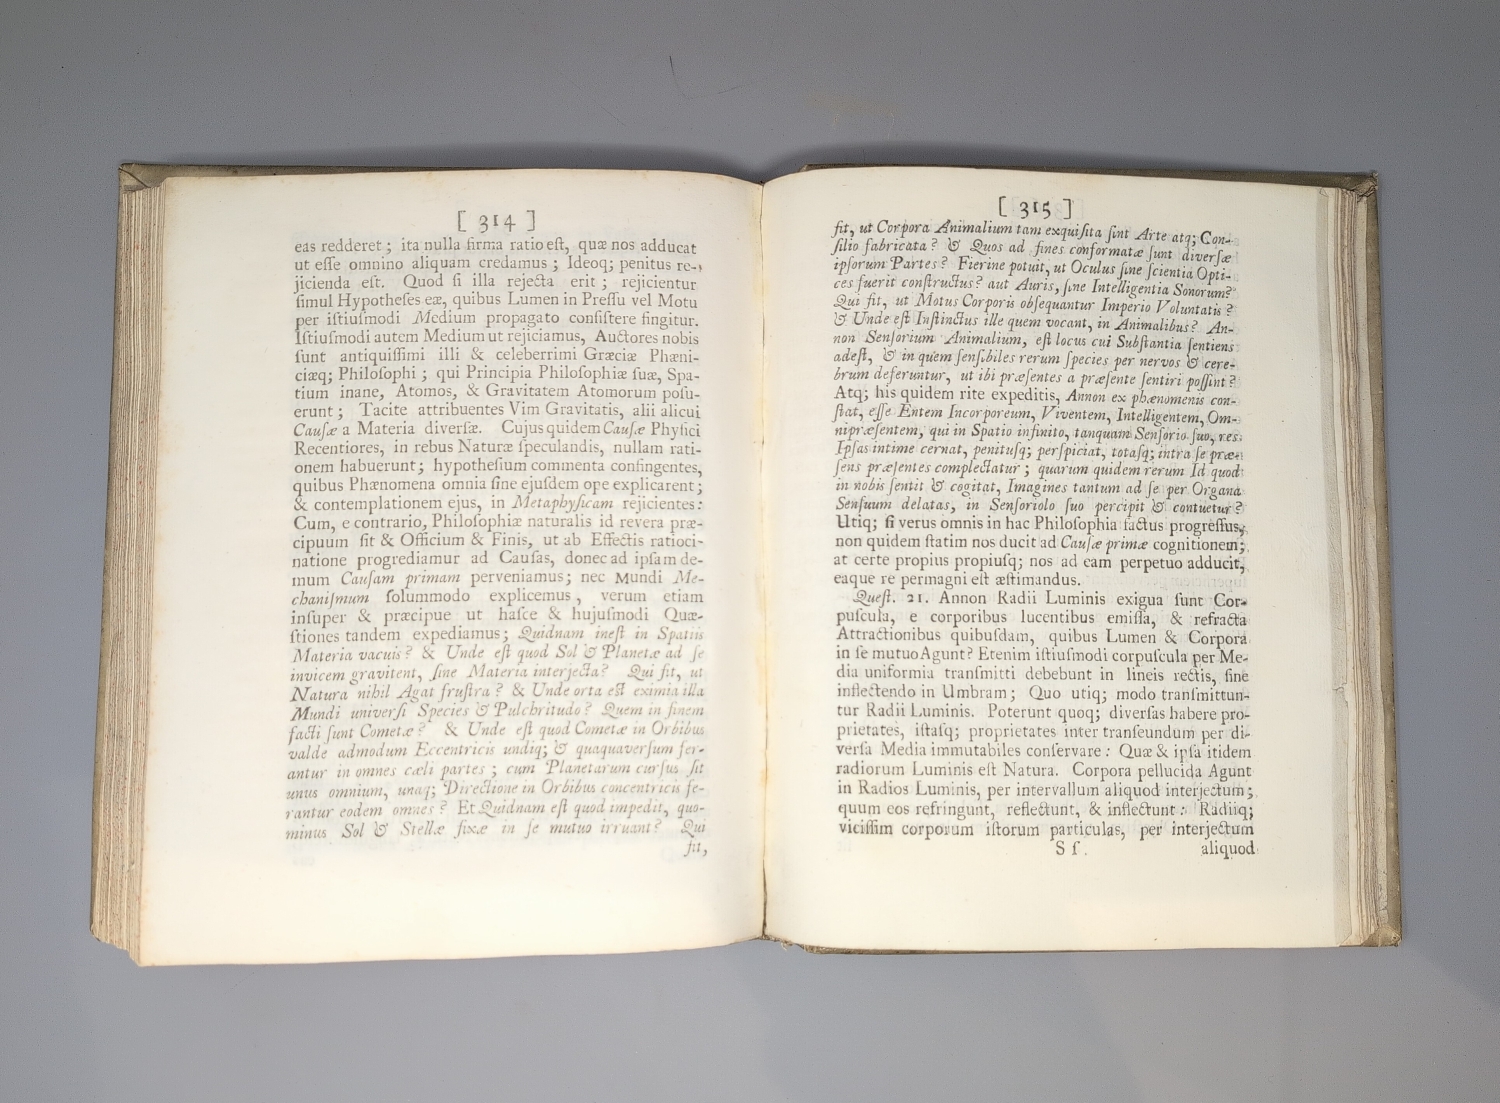 [ 314 ]
eas redderet ; ita nulla firma ratio eſt, quæ nos adducat
ut eſſe omnino aliquam credamus ; Ideoq; penitus re-
jicienda eſt. Quod ſi illa rejecta erit ; rejicientur
ſimul Hypotheſes eæ, quibus Lumen in Preſſu vel Motu
per iſtiuſmodi Medium propagato conſiſtere fingitur.
Iſtiuſmodi autem Medium ut rejiciamus, Auctores nobis
ſunt antiquiſſimi illi & celeberrimi Græciæ Phæni-
ciæq; Philoſophi ; qui Principia Philoſophiæ ſuæ, Spa-
tium inane, Atomos, & Gravitatem Atomorum poſu-
erunt ; Tacite attribuentes Vim Gravitatis, alii alicui
Cauſæ a Materia diverſæ. Cujus quidem Cauſæ Phyſici
Recentiores, in rebus Naturæ ſpeculandis, nullam rati-
onem habuerunt ; hypotheſium commenta confingentes,
quibus Phænomena omnia ſine ejuſdem ope explicarent ;
& contemplationem ejus, in Metaphyſicam rejicientes :
Cum, e contrario, Philoſophiæ naturalis id revera præ-
cipuum ſit & Officium & Finis, ut ab Effectis ratioci-
natione progrediamur ad Cauſas, donec ad ipſam de-
mum Cauſam primam perveniamus ; nec Mundi Me-
chaniſmum ſolummodo explicemus , verum etiam
inſuper & præcipue ut haſce & hujuſmodi Quæ-
ſtiones tandem expediamus ; Quidnam ineſt in Spatiis
Materia vacuis ? & Unde eſt quod Sol & Planetæ ad ſe
invicem gravitent, ſine Materia interjecta ? Qui fit, ut
Natura nihil Agat fruſtra ? & Unde orta eſt eximia illa
Mundi univerſi Species & Pulchritudo ? Quem in finem
facti ſunt Cometæ ? & Unde eſt quod Cometæ in Orbibus
valde admodum Eccentricis undiq; & quaquaverſum fer-
antur in omnes cæli partes ; cum Planetarum curſus ſit
unus omnium, unaq; Directione in Orbibus concentricis fe-
rantur eodem omnes ? Et Quidnam eſt quod impedit, quo-
minus Sol & Stellæ fixæ in ſe mutuo irruant ? Qui
fit,
[ 315 ]
fit, ut Corpora Animalium tam exquiſita ſint Arte atq; Con-
ſilio fabricata ? & Quos ad fines conformatæ ſunt diverſæ
ipſorum Partes ? Fierine potuit, ut Oculus ſine ſcientia Opti-
ces fuerit conſtructus ? aut Auris, ſine Intelligentia Sonorum ?
Qui fit, ut Motus Corporis obſequantur Imperio Voluntatis ?
& Unde eſt Inſtinctus ille quem vocant, in Animalibus ? An-
non Senſorium Animalium, eſt locus cui Subſtantia ſentiens
adeſt, & in quem ſenſibiles rerum ſpecies per nervos & cere-
brum deferuntur, ut ibi præſentes a præſente ſentiri poſſint ?
Atq; his quidem rite expeditis, Annon ex phænomenis con-
ſtat, eſſe Entem Incorporeum, Viventem, Intelligentem, Om-
nipræſentem, qui in Spatio infinito, tanquam Senſorio ſuo, res
Ipſas intime cernat, penituſq; perſpiciat, totaſq; intra ſe præ-
ſens præſentes complectatur ; quarum quidem rerum Id quod
in nobis ſentit & cogitat, Imagines tantum ad ſe per Organa
Senſuum delatas, in Senſoriolo ſuo percipit & contuetur ?
Utiq; ſi verus omnis in hac Philoſophia factus progreſſus,
non quidem ſtatim nos ducit ad Cauſæ primæ cognitionem ;
at certe propius propiuſq; nos ad eam perpetuo adducit,
eaque re permagni eſt æſtimandus.
Queſt. 21. Annon Radii Luminis exigua ſunt Cor-
puſcula, e corporibus lucentibus emiſſa, & refracta
Attractionibus quibuſdam, quibus Lumen & Corpora
in ſe mutuo Agunt ? Etenim iſtiuſmodi corpuſcula per Me-
dia uniformia tranſmitti debebunt in lineis rectis, ſine
inflectendo in Umbram ; Quo utiq; modo tranſmittun-
tur Radii Luminis. Poterunt quoq; diverſas habere pro-
prietates, iſtaſq; proprietates inter tranſeundum per di-
verſa Media immutabiles conſervare : Quæ & ipſa itidem
radiorum Luminis eſt Natura. Corpora pellucida Agunt
in Radios Luminis, per intervallum aliquod interjectum ;
quum eos refringunt, reflectunt, & inflectunt : Radiiq;
viciſſim corporum iſtorum particulas, per interjectum
S ſ . aliquod